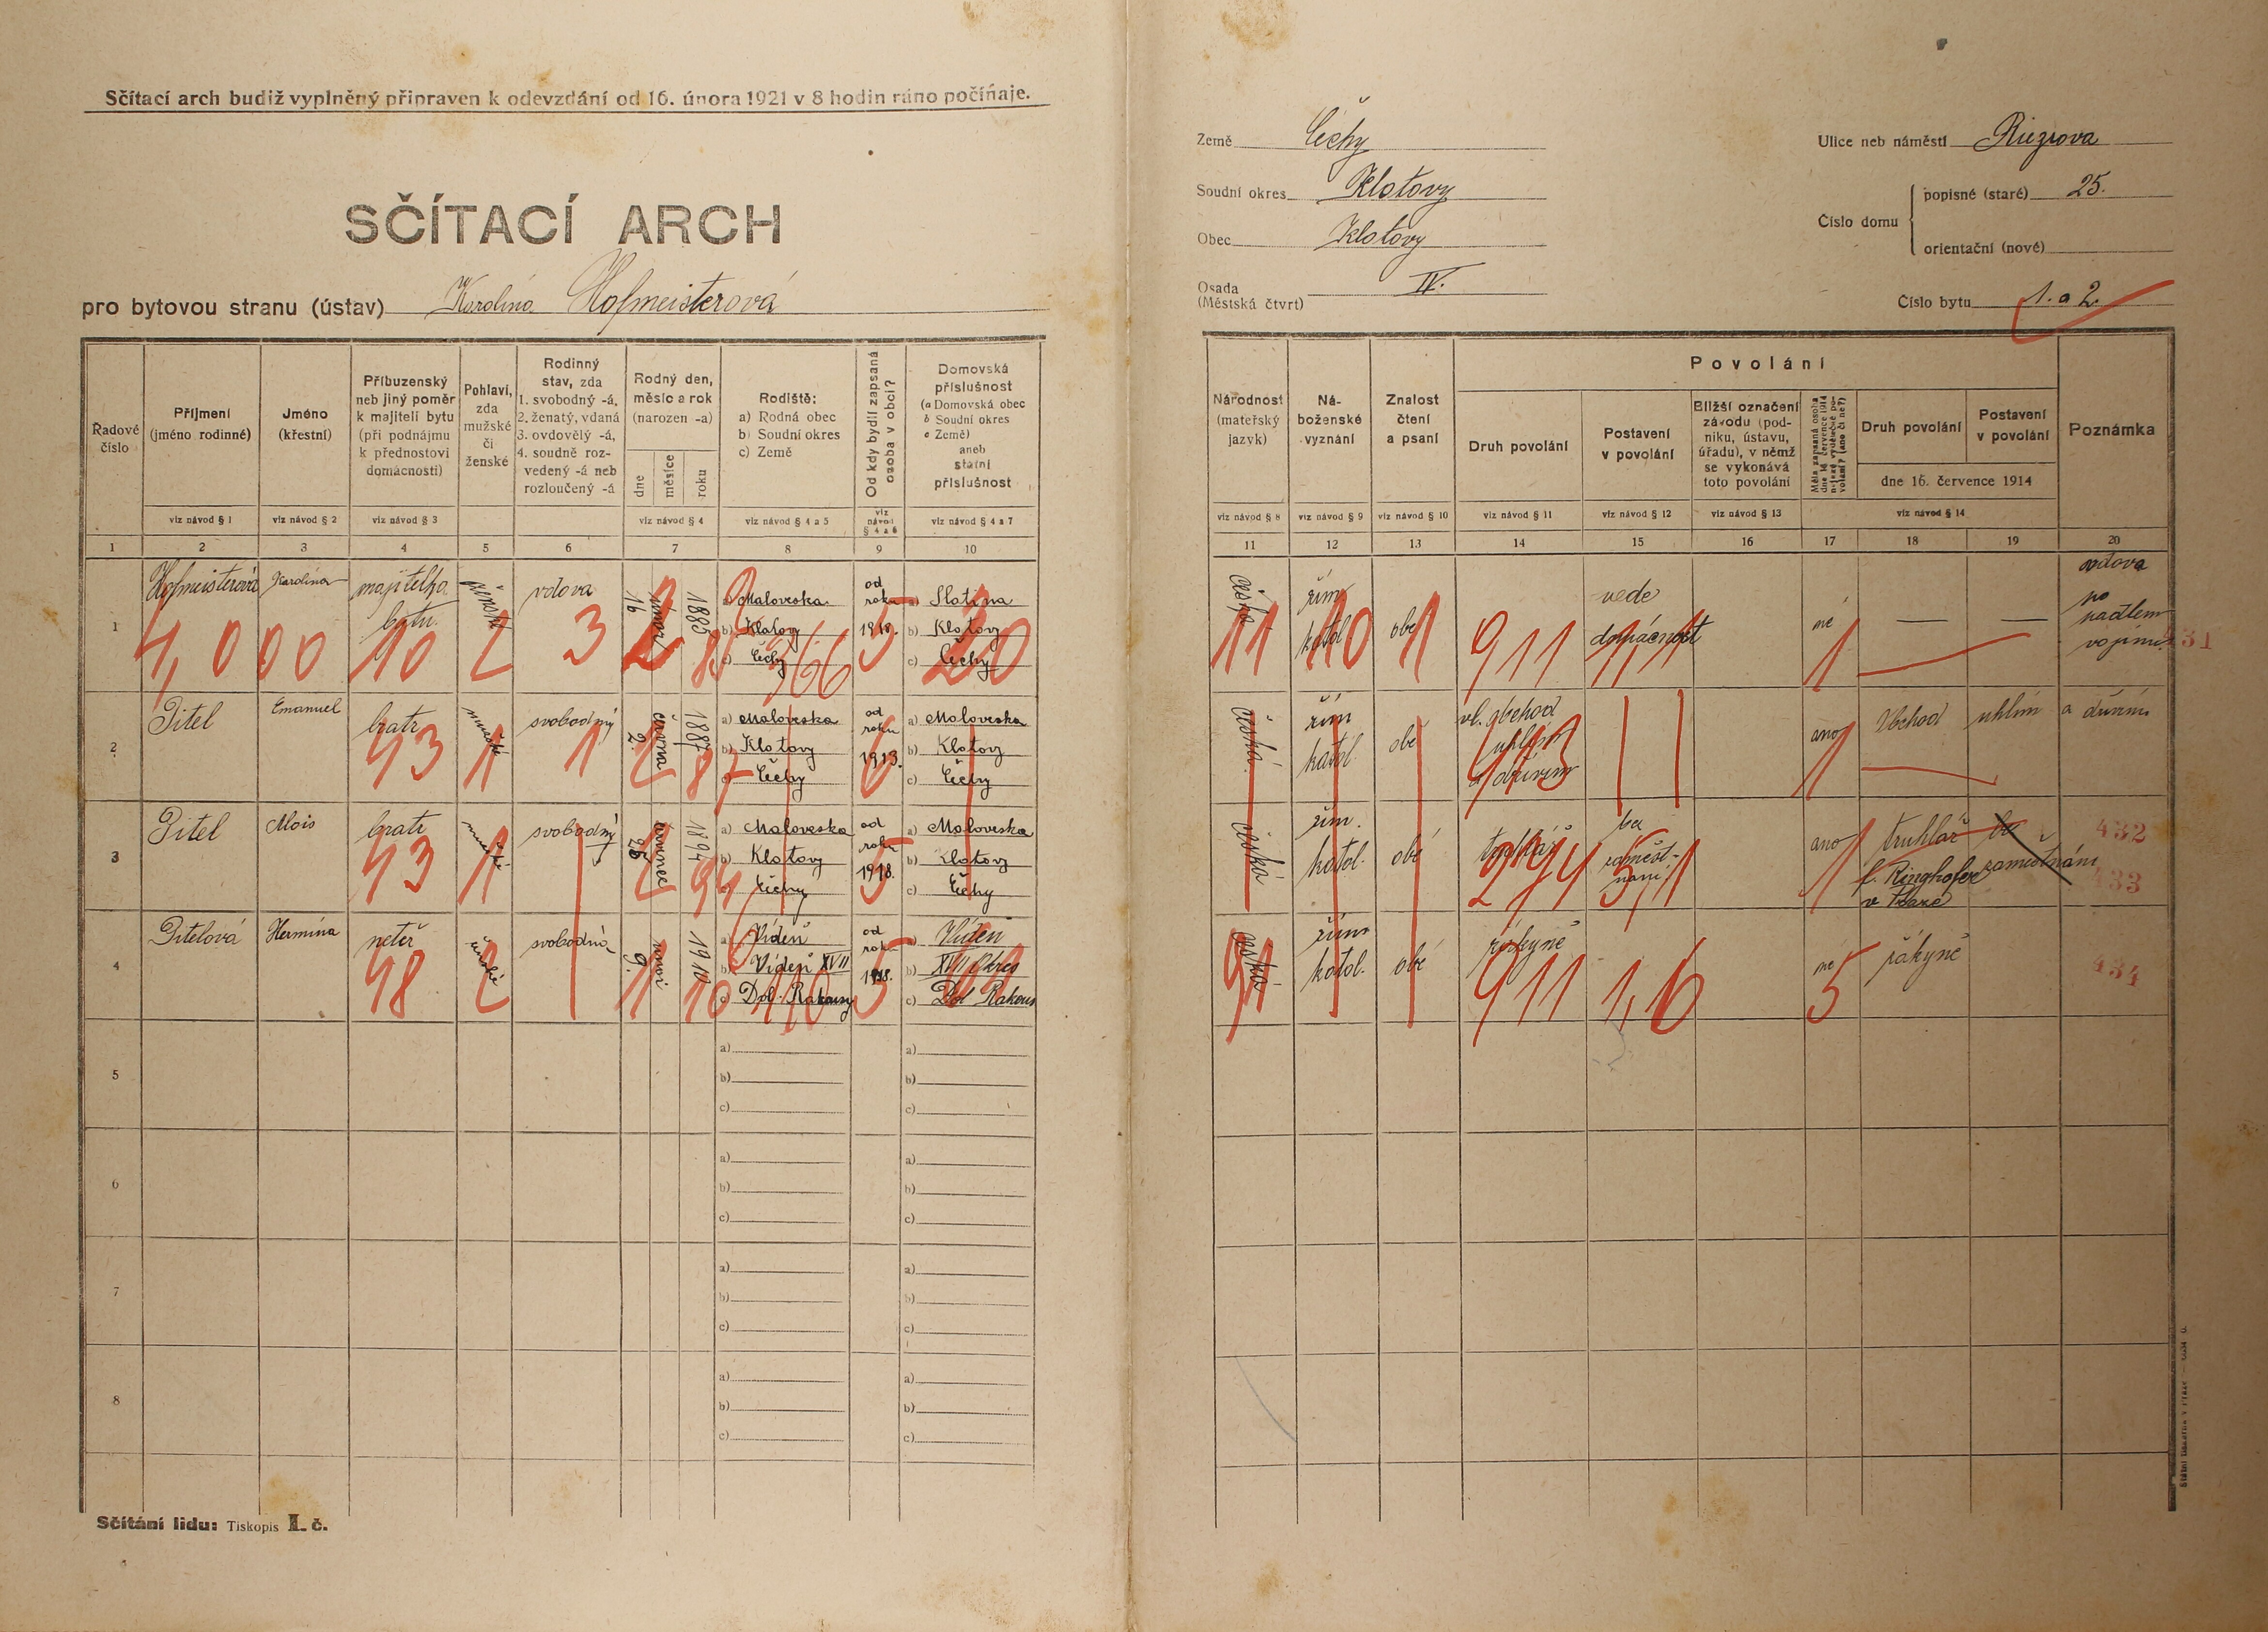 Sčítací arch budiž vyplněný připraven k odevzdání od 16. února 1921 v 8 hodin ráno počínaje.
SČÍTACÍ ARCH
pro bytovou stranu (ústav) Karolina Hofmeisterová
Země Čechy
Soudní okres Klatovy
Obec Klatovy
Osada (Městská čtvrť) IV.
Ulice neb náměstí Riegrova
Číslo domu
popisné (staré) 25.
orientační (nové)
Číslo bytu 1. a 2.
Řadové číslo
Příjmení (jméno rodinné)
viz návod § 1
Jméno (křestní)
viz návod § 2
Příbuzenský neb jiný poměr k majiteli bytu (při podnájmu k přednostovi domácnosti)
viz návod § 3
Pohlaví, zda mužské či ženské
Rodinný stav, zda 1. svobodný -á, 2. ženatý, vdaná 3. ovdovělý -á, 4. soudně rozvedený -á neb rozloučený -á
Rodný den, měsíc a rok (narozen -a)
dne měsíce roku
viz návod § 4
Rodiště:
a) Rodná obec
b) Soudní okres
c) Země
viz návod § 4 a 5
Od kdy bydlí zapsaná osoba v obci?
viz návod § 4 a 6
Domovská příslušnost
(a Domovská obec
b Soudní okres
c Země)
aneb
státní příslušnost
viz návod § 4 a 7
Národnost (mateřský jazyk)
viz návod § 8
Náboženské vyznání
viz návod § 9
Znalost čtení a psaní
viz návod § 10
Povolání
Druh povolání
viz návod § 11
Postavení v povolání
viz návod § 12
Bližší označení závodu (podniku, ústavu, úřadu), v němž se vykonává toto povolání
viz návod § 13
Měla zapsaná osoba dne 16. července 1914 nějaké výdělečné povolání? (ano či ne?)
Druh povolání
Postavení v povolání
dne 16. července 1914
viz návod § 14
Poznámka
1 2 3 4 5 6 7 8 9 10 11 12 13 14 15 16 17 18 19 20
1 Hofmeisterová Karolina majitelka bytu. ženské vdova 16 února 1885
a) Maloveska
b) Klatovy
c) Čechy
od roku 1918.
a) Slatina
b) Klatovy
c) Čechy
česká řím. katol. obé vede domácnost ne — — vdova po padlém vojínu
1,0 00 10 2 3 2 85 366 5 20 11 10 1 911 1,1 1 431
2 Pitel Emanuel bratr mužské svobodný 2. června 1887
a) Maloveska
b) Klatovy
c) Čechy
od roku 1913.
a) Maloveska
b) Klatovy
c) Čechy
česká řím. katol. obé vl. obchod uhlím a dřívím ano Obchod uhlím a dřívím
43 1 1 2 87 6 1
3 Pitel Alois bratr mužské svobodný 25 července 1894
a) Maloveska
b) Klatovy
c) Čechy
od roku 1918.
a) Maloveska
b) Klatovy
c) Čechy
česká řím. katol. obé truhlář bez zaměstnání. ano truhlář
f. Ringhofer
v Praze
43 1 2 94 5 1 432
433
4 Pitelová Hermina neteř ženské svobodná 9. 1910
a) Vídeň
b) Vídeň XVII
c) Dol. Rakousy
od roku 1918.
a) Vídeň
b) XVII Okres
c) Dol Rakous
česká řím. katol. obé žákyně ne žákyně
48 2 1 10 110 5 91 911 1,6 5 434
5 a) b) c) a) b) c)
6 a) b) c) a) b) c)
7 a) b) c) a) b) c)
8 a) b) c) a) b) c)
Sčítání lidu: Tiskopis I. č.